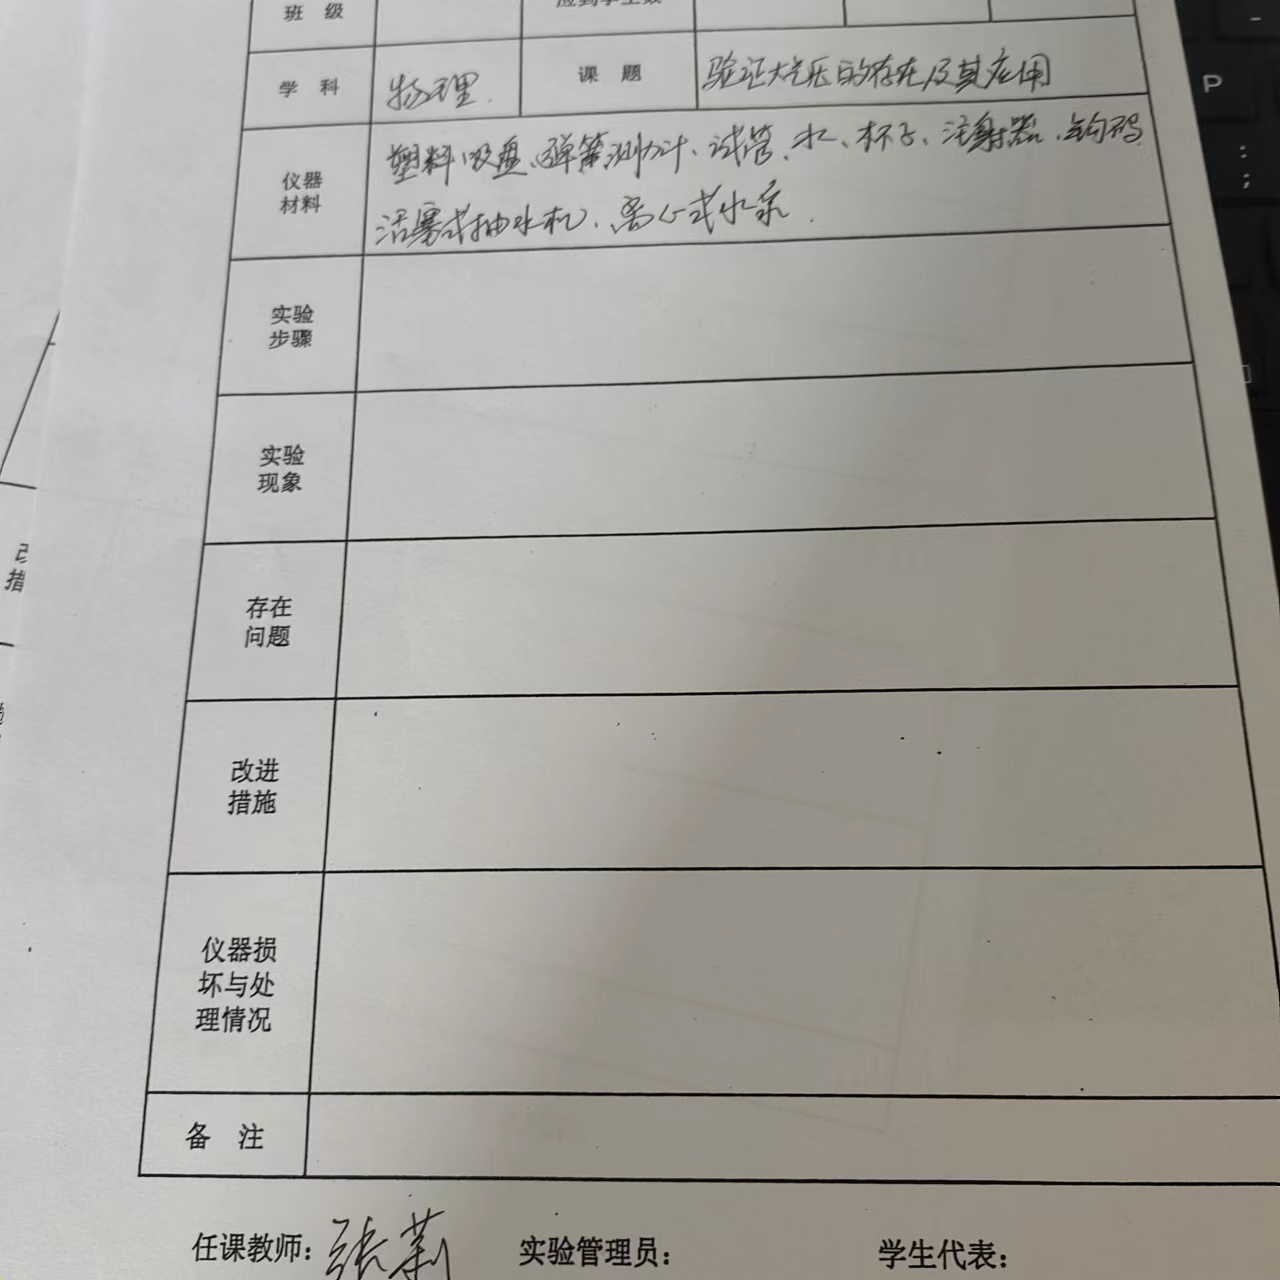 班 级
学 科 物理. 课 题 验证大气压的存在及其应用
仪器
材料
塑料吸盘、弹簧测力计、试管、水、杯子、注射器、钩码
活塞式抽水机、离心式水泵.
实验
步骤
实验
现象
存在
问题
改进
措施
仪器损
坏与处
理情况
备 注
任课教师: 张莉 实验管理员: 学生代表:
措
P